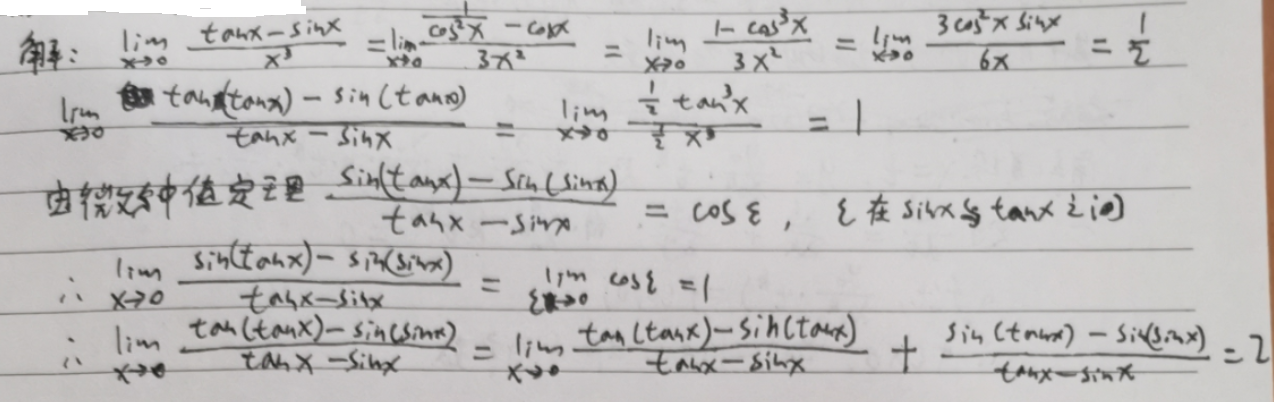 解: lim x→0 (tanx - sinx)/x³ = lim x→0 (1/cos²x - cosx)/3x² = lim x→0 (1 - cos³x)/3x² = lim x→0 3cos²x sinx/6x = 1/2
lim x→0 (tan(tanx) - sin(tanx))/(tanx - sinx) = lim x→0 (1/2 tan³x)/(1/2 x³) = 1
由微分中值定理 (sin(tanx) - sin(sinx))/(tanx - sinx) = cosξ, ξ在sinx与tanx之间
∴ lim x→0 (sin(tanx) - sin(sinx))/(tanx - sinx) = lim ξ→0 cosξ = 1
∴ lim x→0 (tan(tanx) - sin(sinx))/(tanx - sinx) = lim x→0 (tan(tanx) - sin(tanx))/(tanx - sinx) + (sin(tanx) - sin(sinx))/(tanx - sinx) = 2